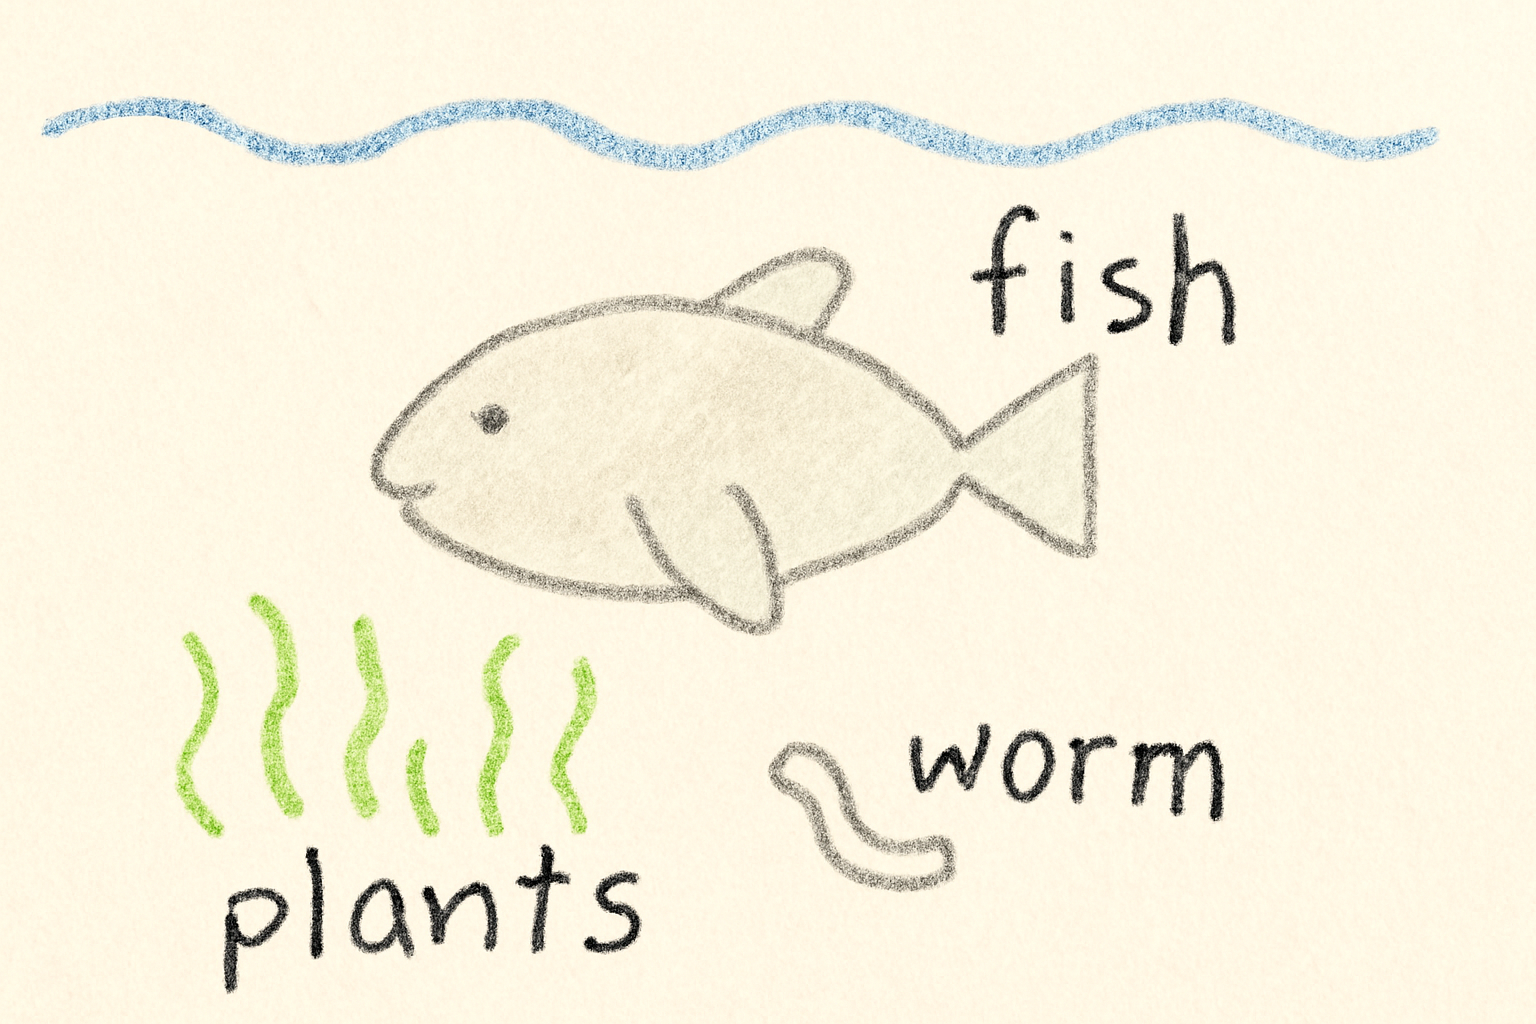 fish
worm
plants